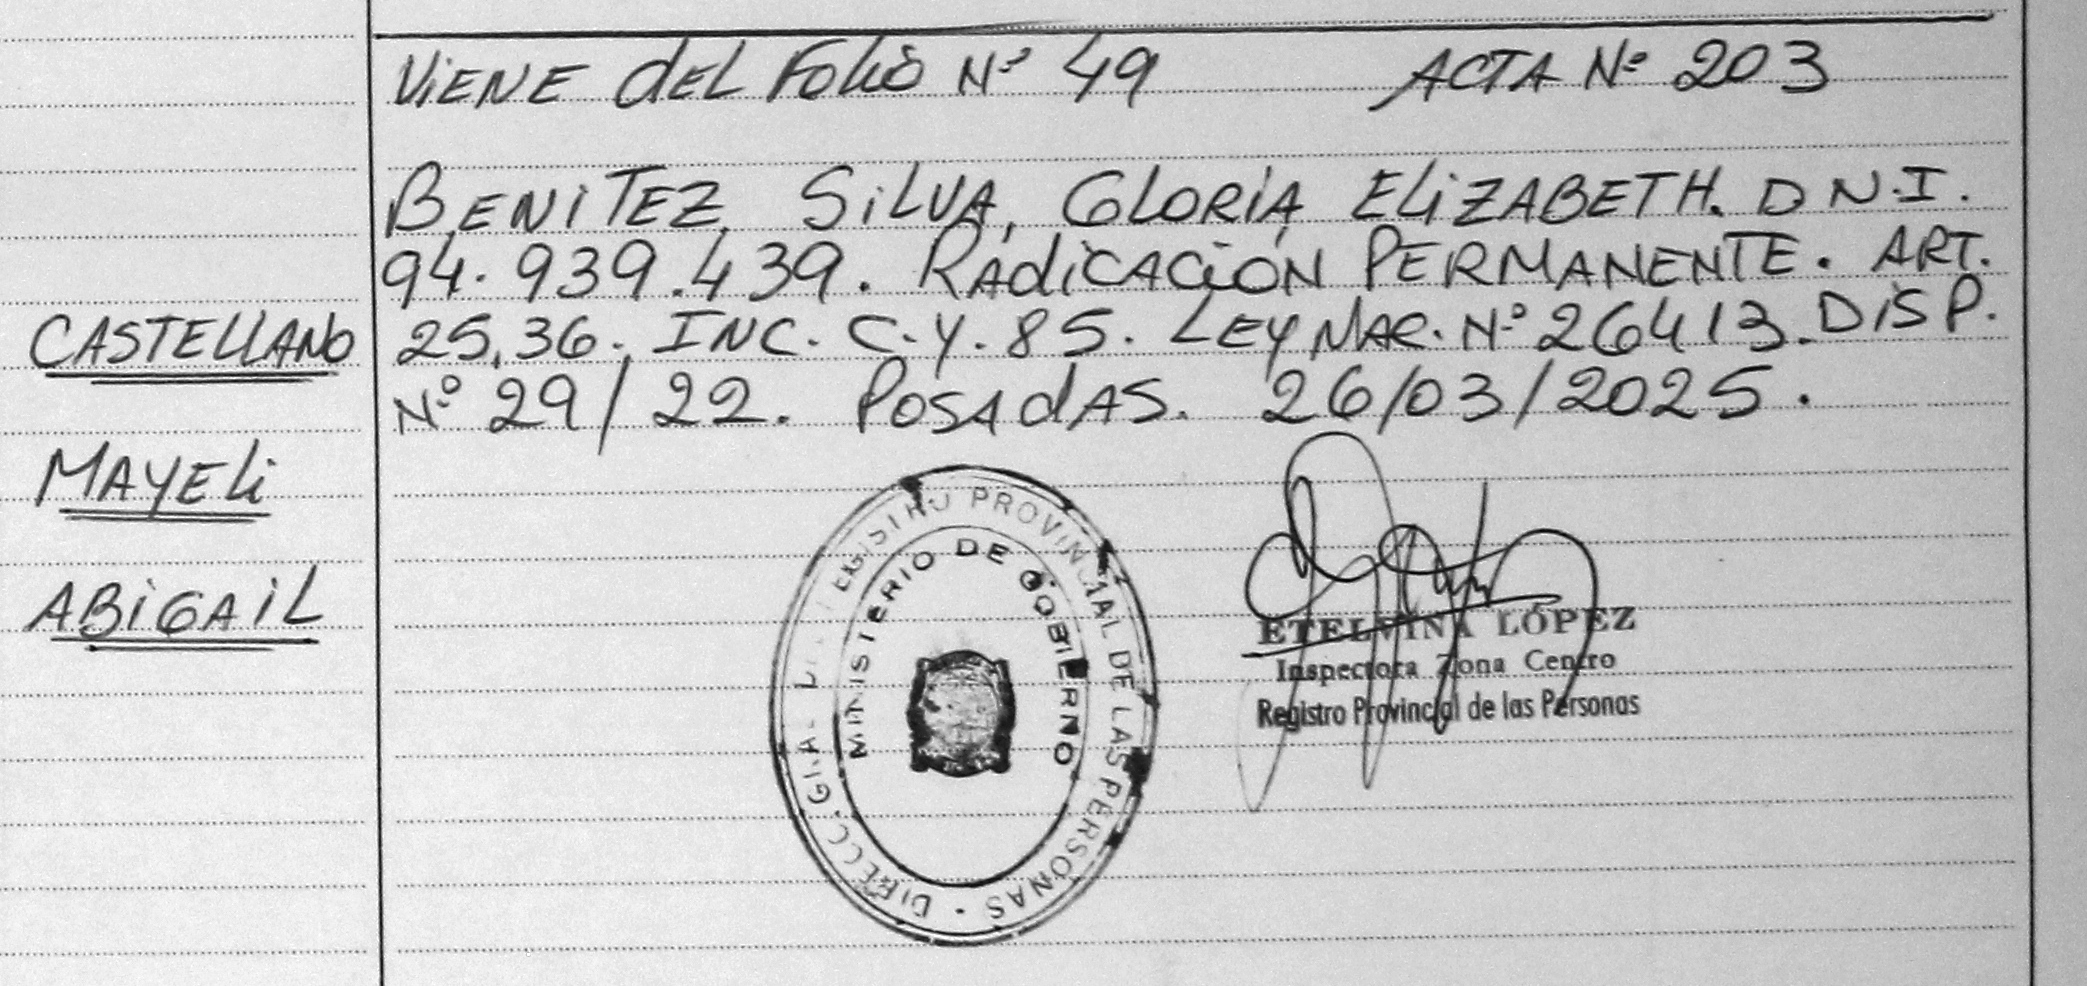 VIENE DEL FOLIO Nº 49 ACTA Nº 203
BENITEZ SILVA, GLORIA ELIZABETH. D N.I.
94.939.439. RADICACIÓN PERMANENTE. ART.
25,36. INC. C.Y.85. LEY NAC. Nº 26413. DISP.
Nº 29/22. POSADAS. 26/03/2025.
CASTELLANO
MAYELI
ABIGAIL
REGISTRO PROVINCIAL DE LAS PERSONAS - DIRECC. GRAL. DEL
MINISTERIO DE GOBIERNO
ETELVINA LÓPEZ
Inspectora Zona Centro
Registro Provincial de las Personas